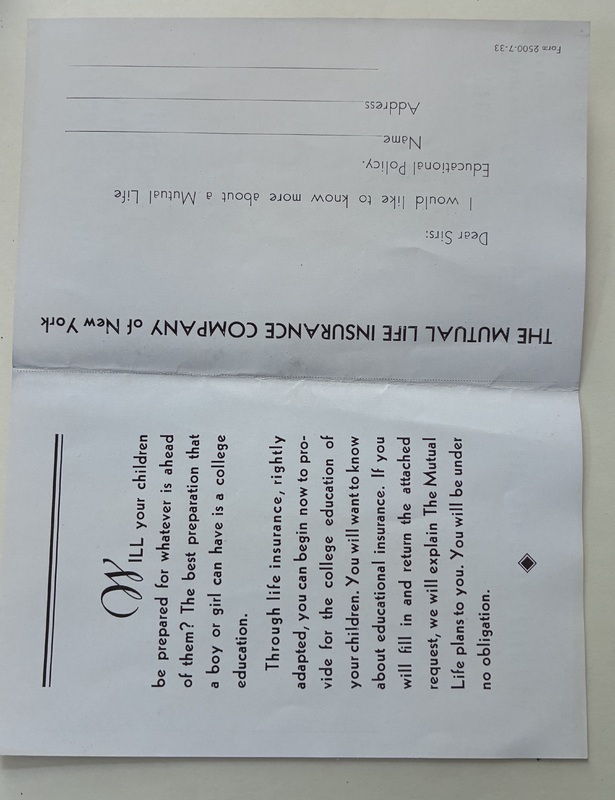 THE MUTUAL LIFE INSURANCE COMPANY of New York
Dear Sirs:
I would like to know more about a Mutual Life
Educational Policy.
Name
Address
Form 2500-7-33
WILL your children
be prepared for whatever is ahead
of them? The best preparation that
a boy or girl can have is a college
education.
Through life insurance, rightly
adapted, you can begin now to pro-
vide for the college education of
your children. You will want to know
about educational insurance. If you
will fill in and return the attached
request, we will explain The Mutual
Life plans to you. You will be under
no obligation.